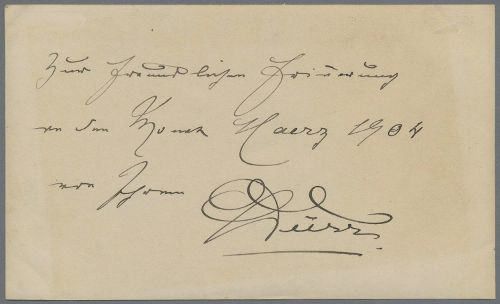 Zur freundlichen Erinnerung
an den Monat Maerz 1904
von Ihrem